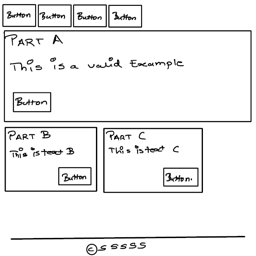 Button Button Button Button
PART A
This is a valid Example
Button
PART B
This is text B
Button
PART C
This is text C
Button.
© SSSSS